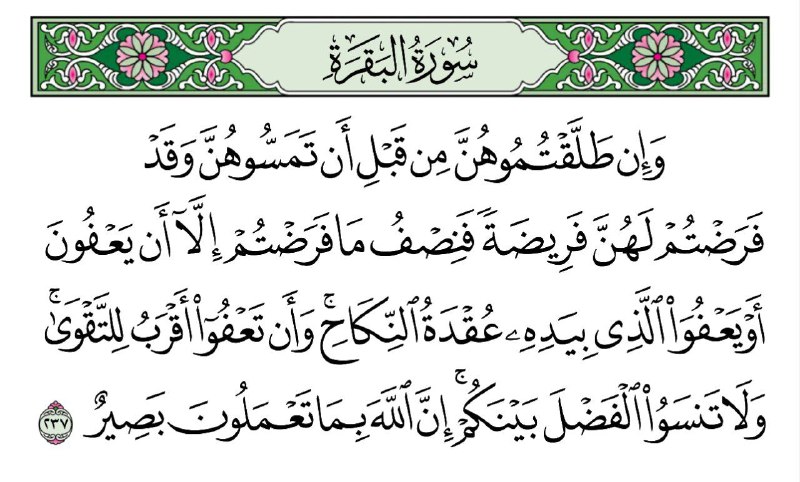 سُورَةُ البَقَرَةِ
وَإِن طَلَّقۡتُمُوهُنَّ مِن قَبۡلِ أَن تَمَسُّوهُنَّ وَقَدۡ
فَرَضۡتُمۡ لَهُنَّ فَرِيضَةٗ فَنِصۡفُ مَا فَرَضۡتُمۡ إِلَّآ أَن يَعۡفُونَ
أَوۡ يَعۡفُوَاْ ٱلَّذِي بِيَدِهِۦ عُقۡدَةُ ٱلنِّكَاحِۚ وَأَن تَعۡفُوٓاْ أَقۡرَبُ لِلتَّقۡوَىٰۚ
وَلَا تَنسَوُاْ ٱلۡفَضۡلَ بَيۡنَكُمۡۚ إِنَّ ٱللَّهَ بِمَا تَعۡمَلُونَ بَصِيرٌ ٢٣٧